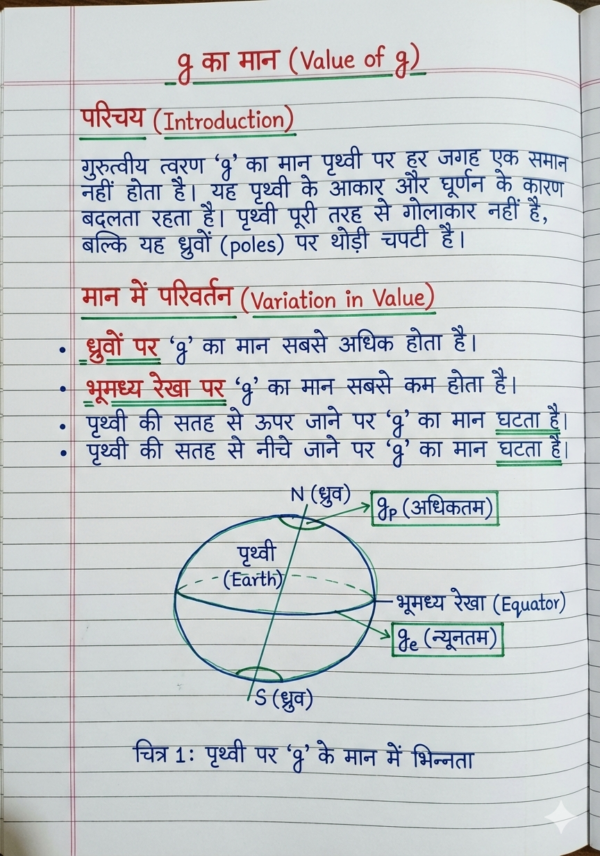 g का मान (Value of g)
परिचय (Introduction)
गुरुत्वीय त्वरण 'g' का मान पृथ्वी पर हर जगह एक समान
नहीं होता है। यह पृथ्वी के आकार और घूर्णन के कारण
बदलता रहता है। पृथ्वी पूरी तरह से गोलाकार नहीं है,
बल्कि यह ध्रुवों (poles) पर थोड़ी चपटी है।
मान में परिवर्तन (Variation in Value)
• ध्रुवों पर 'g' का मान सबसे अधिक होता है।
• भूमध्य रेखा पर 'g' का मान सबसे कम होता है।
• पृथ्वी की सतह से ऊपर जाने पर 'g' का मान घटता है।
• पृथ्वी की सतह से नीचे जाने पर 'g' का मान घटता है।
N (ध्रुव)
gₚ (अधिकतम)
पृथ्वी
(Earth)
भूमध्य रेखा (Equator)
gₑ (न्यूनतम)
S (ध्रुव)
चित्र 1: पृथ्वी पर 'g' के मान में भिन्नता